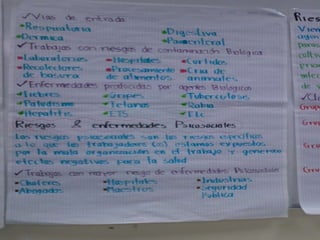 ✓ Vias de entrada
• Respiratoria • Digestiva
• Dermica • Parenteral
✓ Trabajos con riesgos de contaminación Biológica
• Laboratorios • Hospitales • Curtidos
• Recolectores de basura • Procesamiento de alimentos • Cria de animales
✓ Enfermedades producidas por agentes Biologicos
• Gripes • Tuberculose
• Paludismo • Tetanos • Rabia
• Hepatitis • ETS • Etc
Riesgos & enfermedades Psicosociales
Los riesgos psicosociales son los riesgos especificos
a lo que los trabajadores (as) estamos expuestos
por la mala organización en el trabajo y generan
efectos negativos para la salud
✓ Trabajos con mayor riesgo de enfermedades Psicosociales
• Choferes • Hospitales • Industrias
• Abogados • Maestros • Seguridad Publica
Ries